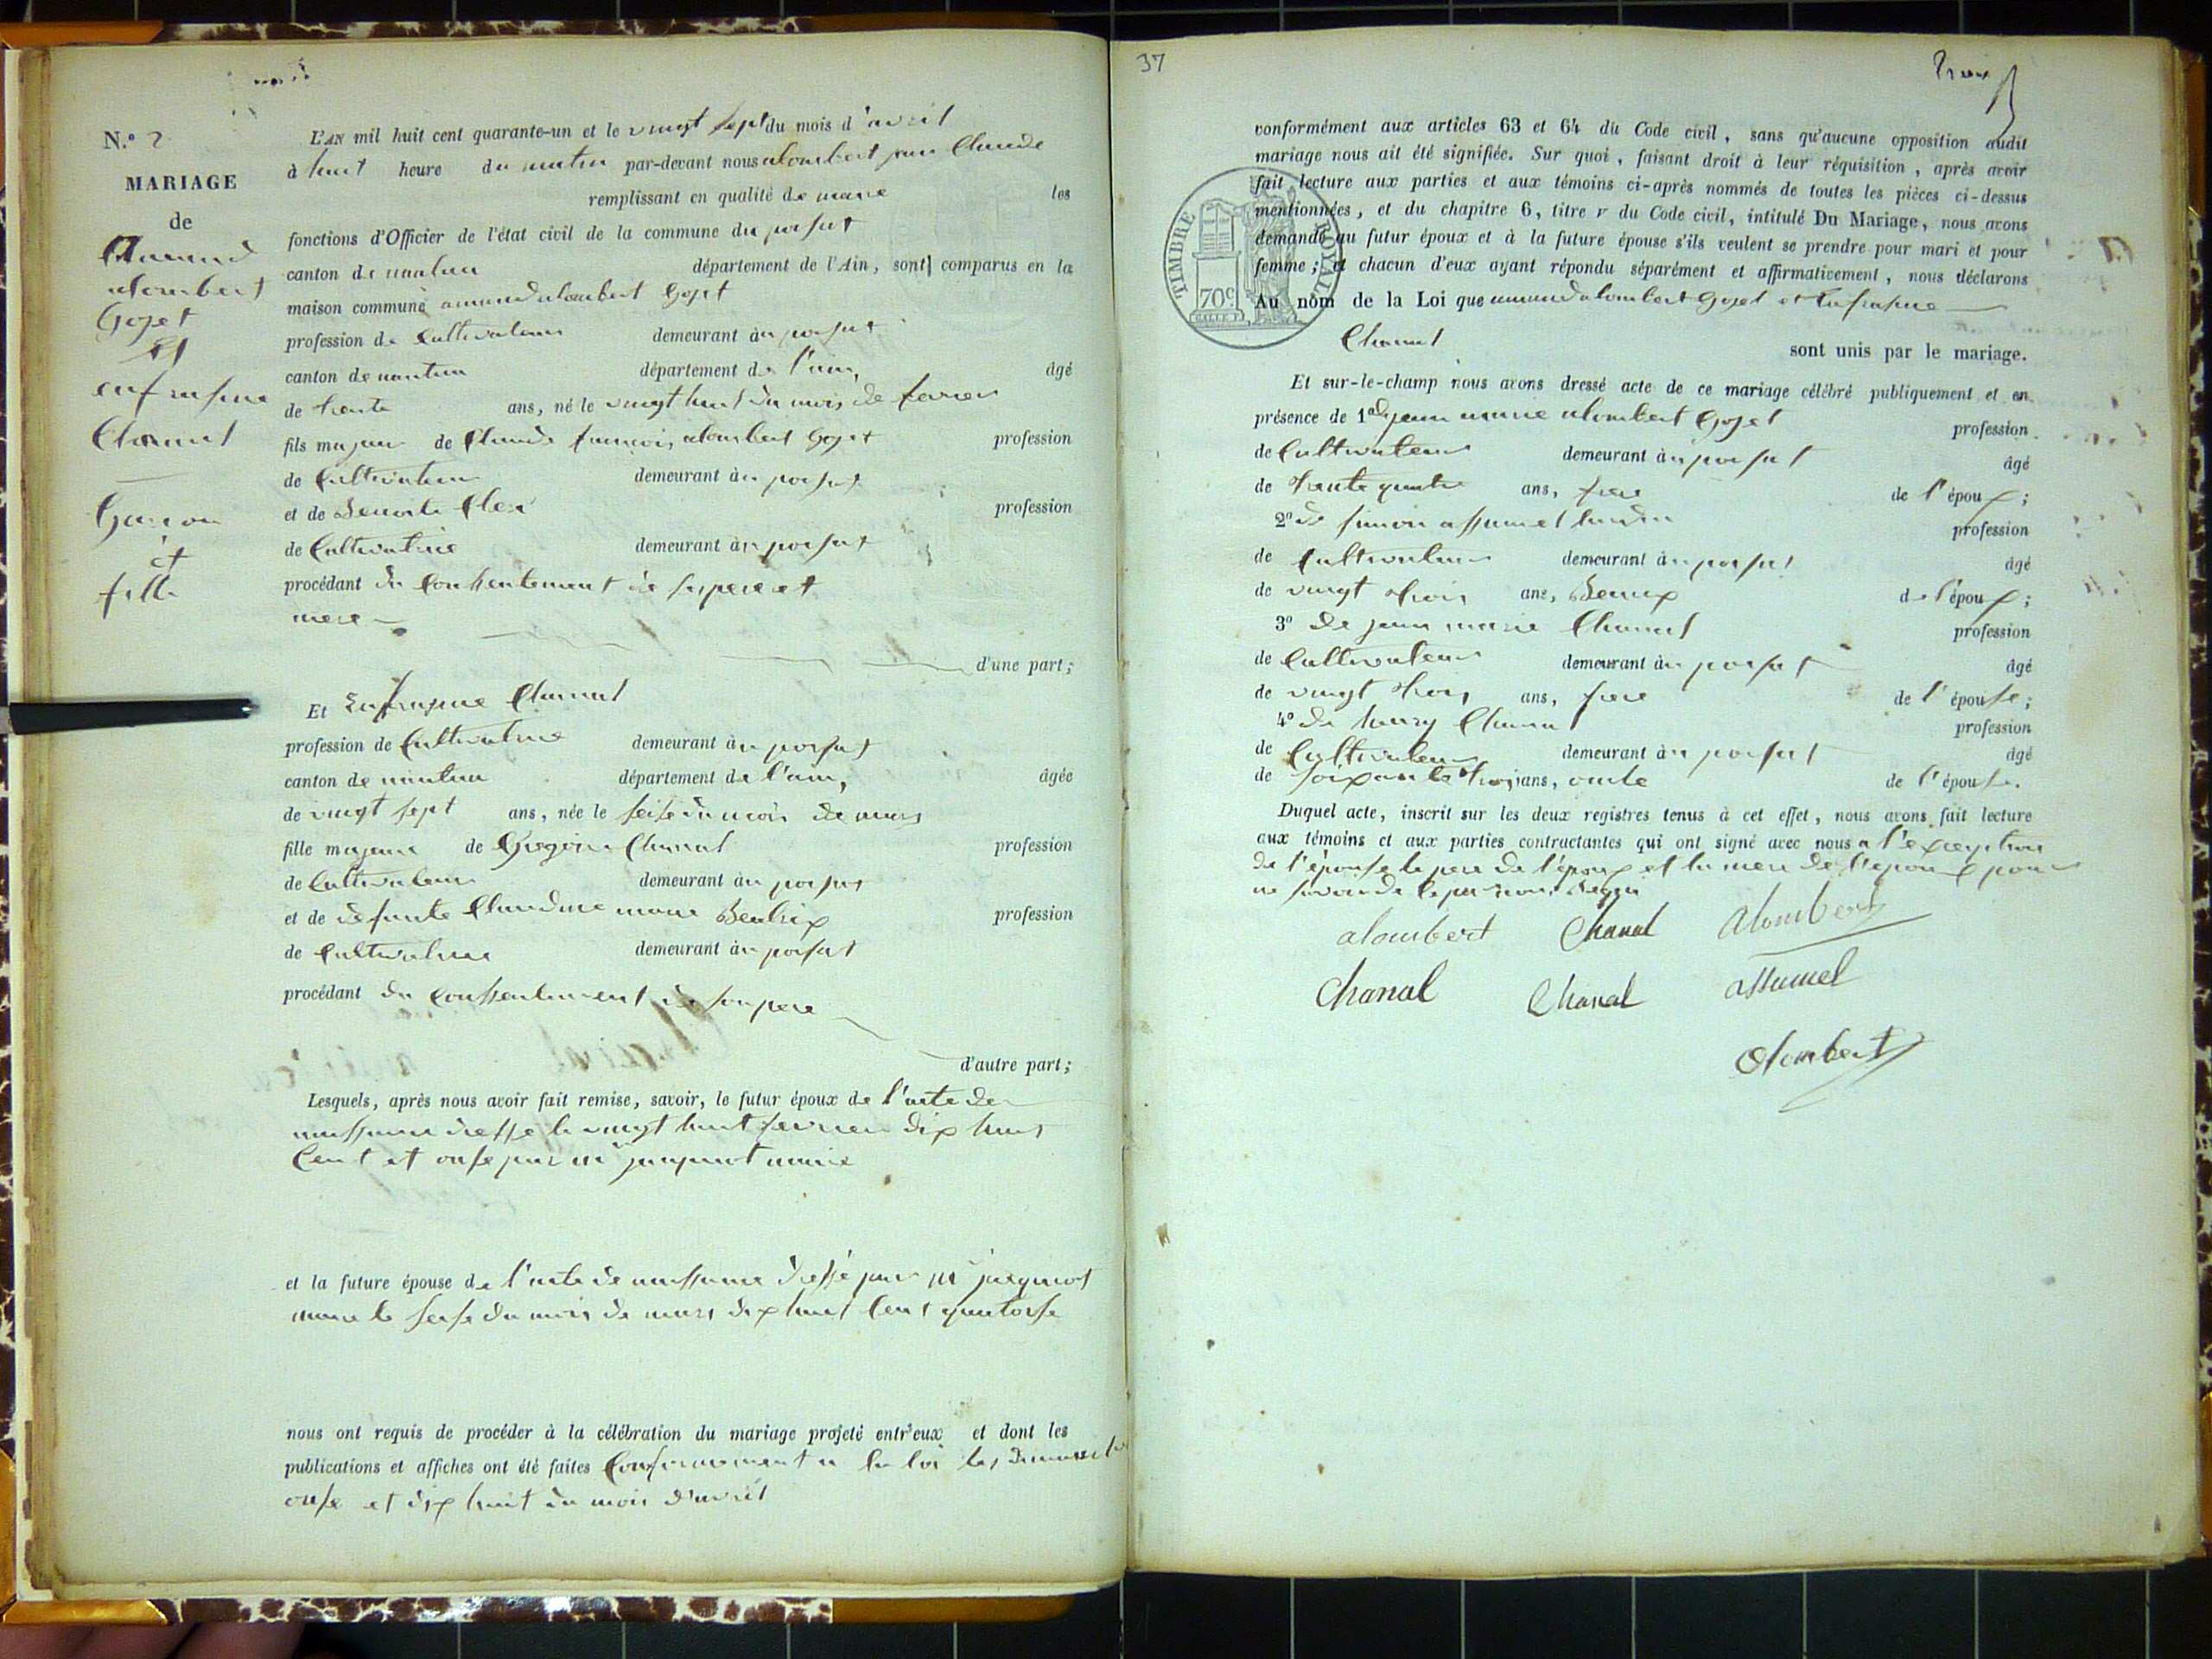 N.º 2
MARIAGE
de
Armand
alombert
Gojet
Et
eufrasine
Chanal
Garcon
et
fille
L'AN mil huit cent quarante-un et le vingt sept du mois d'avril
à huit heure du matin par-devant nous alombert jean Claude
remplissant en qualité de maire les
fonctions d'Officier de l'état civil de la commune du poisat
canton de nantua département de l'Ain, sont comparus en la
maison commune armand alombert Gojet
profession de Cultivateur demeurant au poisat
canton de nantua département de l'ain, âgé
de trente ans, né le vingt huit du mois de fevrier
fils majeur de Claude francois alombert Gojet profession
de Cultivateur demeurant au poisat
et de Benoite profession
de Cultivatrice demeurant au poisat
procédant du Conssentement de ses pere et
mere
d'une part;
Et Eufrasine Chanal
profession de Cultivatrice demeurant au poisat
canton de nantua département de l'ain, âgée
de vingt sept ans, née le seise du mois de mars
fille majeure de Gregoire Chanal profession
de Cultivateur demeurant au poisat
et de defunte Claudine marie Beatrix profession
de Cultivatrice demeurant au poisat
procédant du Conssentement de son pere
d'autre part;
Lesquels, après nous avoir fait remise, savoir, le futur époux de l'acte de
naissance dressé le vingt huit fevrier dix huit
Cent et onse par mr jacquinot maire
et la future épouse de l'acte de naissance dressé par mr jacquinot
maire le seise du mois de mars dix huit Cent quatorse
nous ont requis de procéder à la célébration du mariage projeté entr'eux et dont les
publications et affiches ont été faites Conformement a la loi les dimanche
onse et dix huit du mois d'avril
37
Trois
conformément aux articles 63 et 64 du Code civil, sans qu'aucune opposition audit
mariage nous ait été signifiée. Sur quoi, faisant droit à leur réquisition, après avoir
fait lecture aux parties et aux témoins ci-après nommés de toutes les pièces ci-dessus
mentionnées, et du chapitre 6, titre v du Code civil, intitulé Du Mariage, nous avons
demandé au futur époux et à la future épouse s'ils veulent se prendre pour mari et pour
femme; et chacun d'eux ayant répondu séparément et affirmativement, nous déclarons
Au nom de la Loi que armand alombert Gojet et Eufrasine
Chanal
sont unis par le mariage.
TIMBRE ROYAL
70c
Et sur-le-champ nous avons dressé acte de ce mariage célébré publiquement et en
présence de 1º de jean marie alombert Gojet profession
de Cultivateur demeurant au poisat âgé
de trente quatre ans, frere de l'époux;
2º de simon assumel profession
de Cultivateur demeurant au poisat âgé
de vingt trois ans, de l'époux;
3º de jean marie Chanal profession
de Cultivateur demeurant au poisat âgé
de vingt trois ans, frere de l'épouse;
4º de henry Chanal profession
de Cultivateur demeurant au poisat âgé
de soixante trois ans, oncle de l'épouse.
Duquel acte, inscrit sur les deux registres tenus à cet effet, nous avons fait lecture
aux témoins et aux parties contractantes qui ont signé avec nous a l'exception
de l'épouse le pere de l'époux et la mere de l'époux pour
ne savoir de le
alombert Chanal Alombert
Chanal Chanal assumel
Alombert